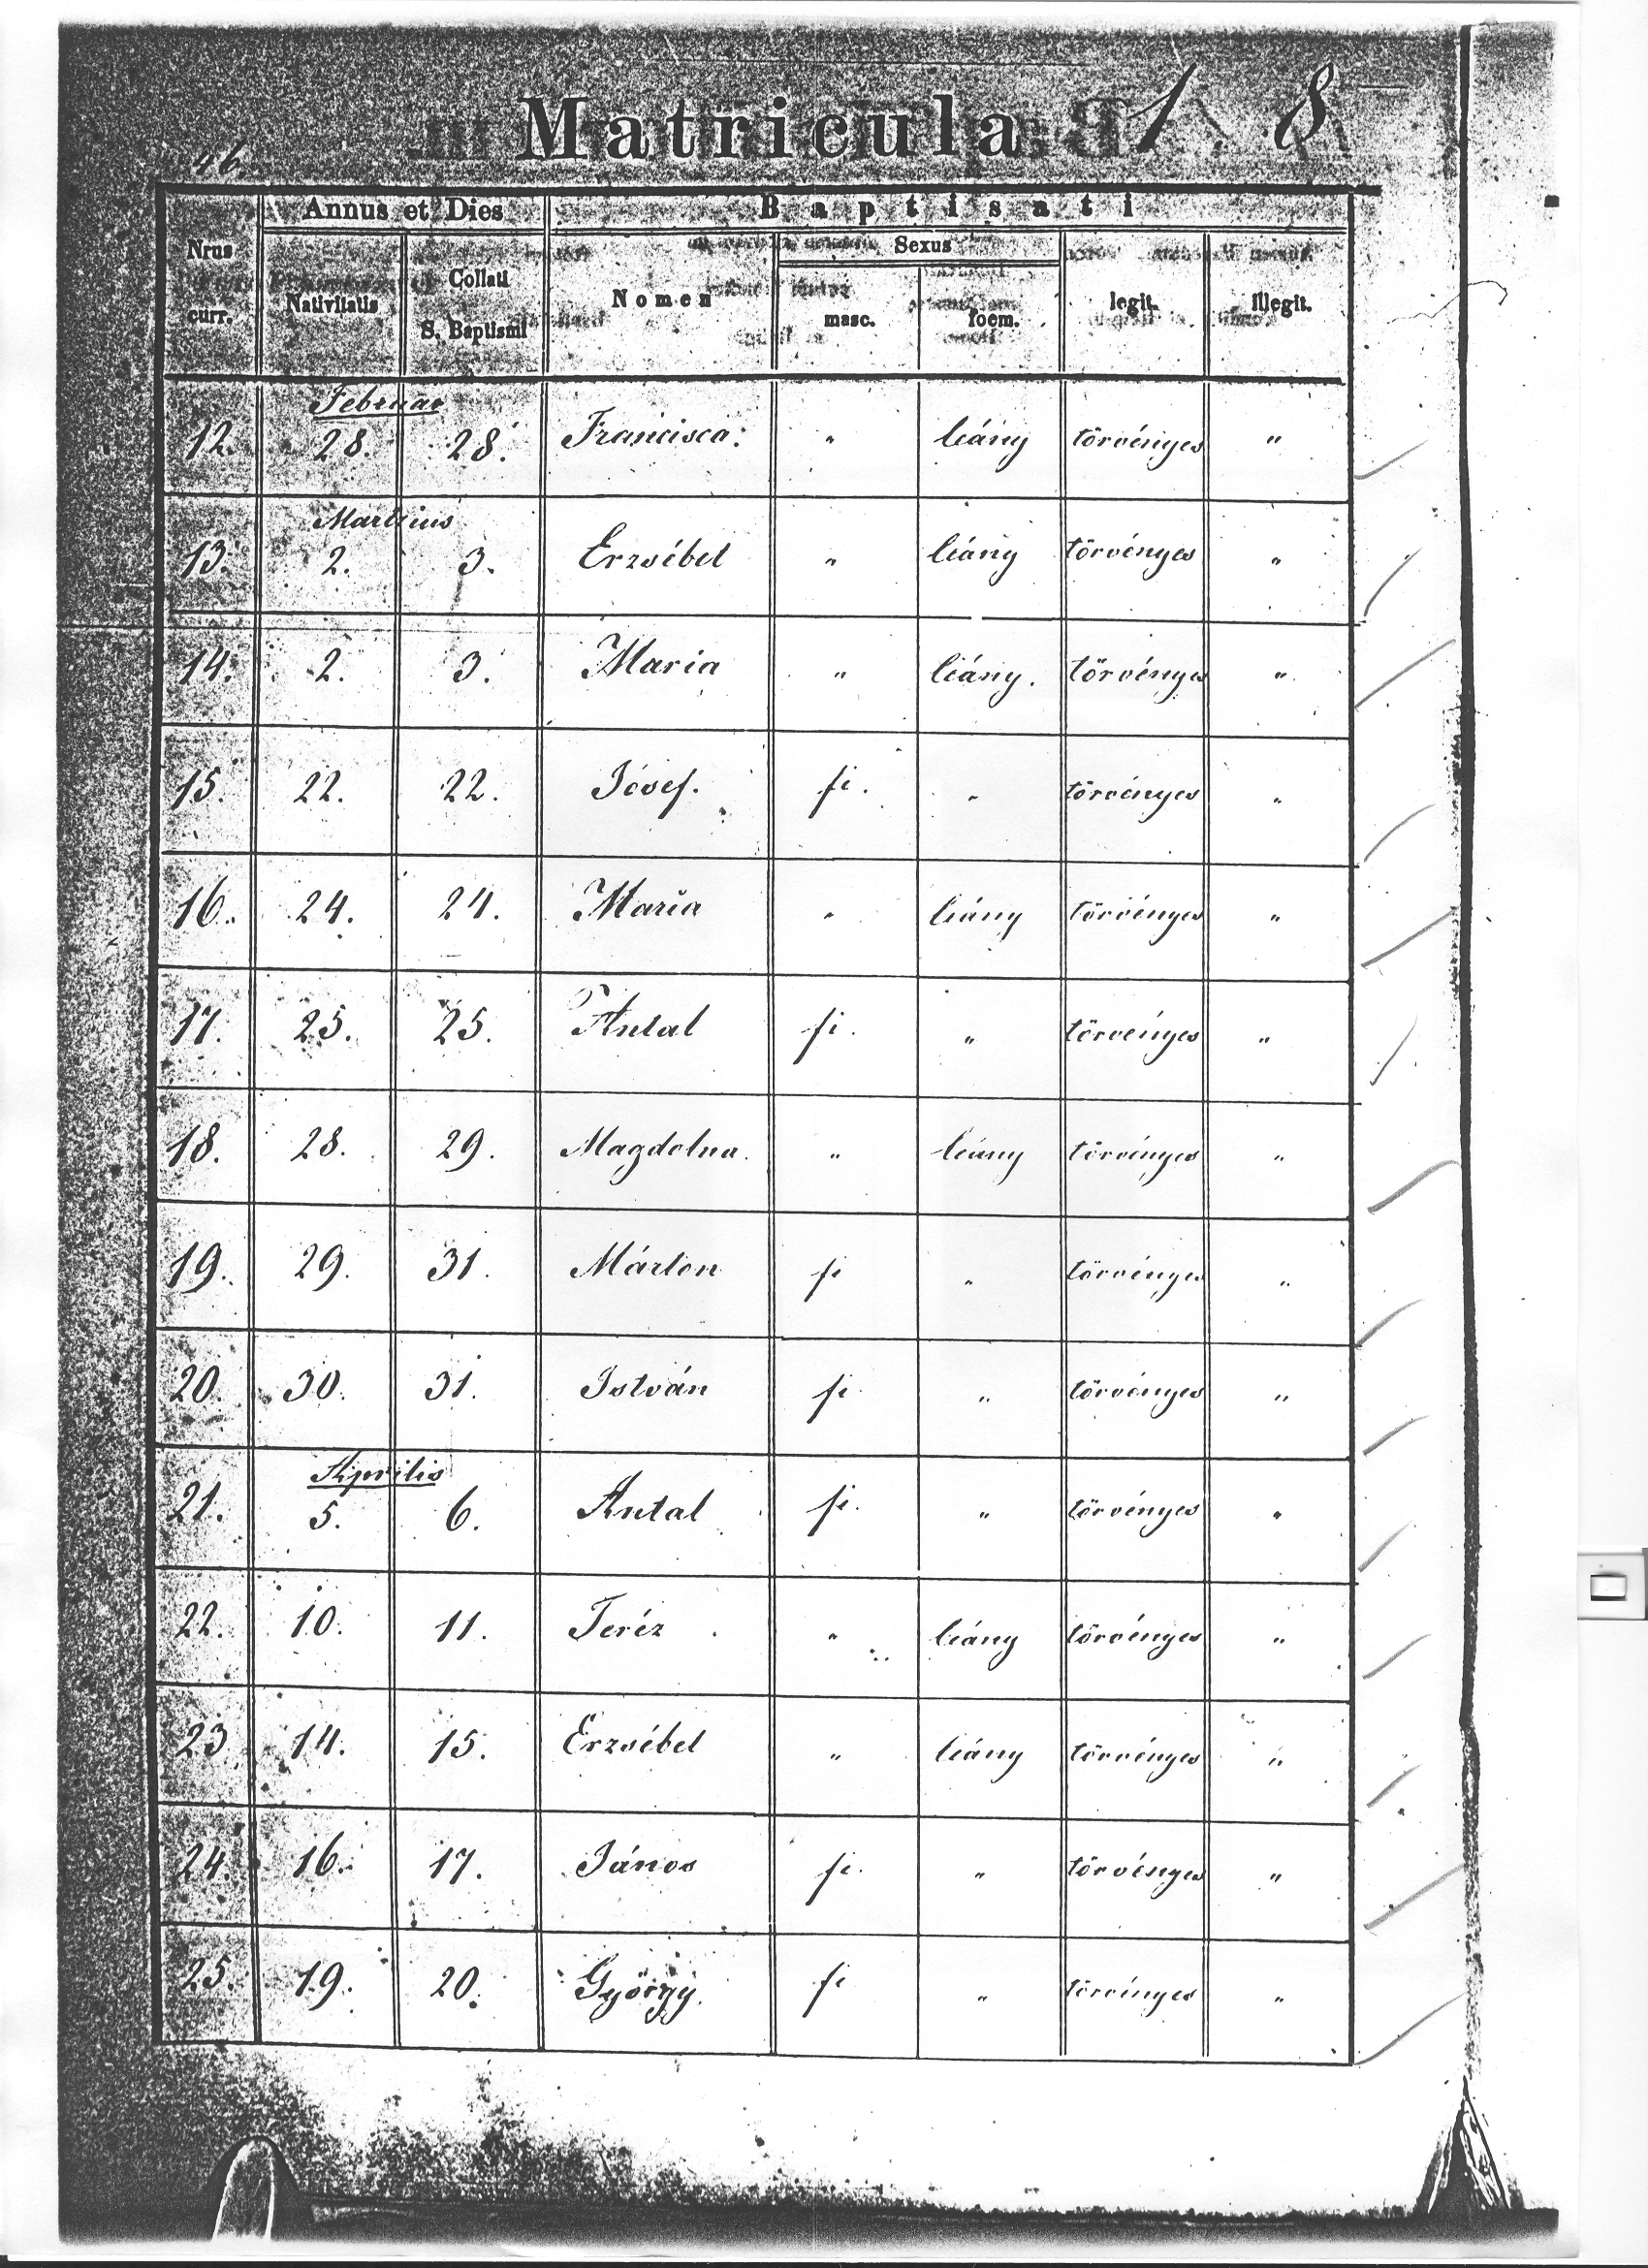 Matricula 1 8
46.
Annus et Dies Baptisati
Nrus curr. Nativitatis Collati S. Baptismi Nomen Sexus masc. foem. legit. illegit.
Februar
12. 28. 28. Francisca. " leány törvényes "
Martzius
13. 2. 3. Erzsébet " leány törvényes "
14. 2. 3. Maria " leány. törvényes "
15. 22. 22. Jósef. fi. " törvényes "
16. 24. 24. Maria " leány törvényes "
17. 25. 25. Antal fi. " törvényes "
18. 28. 29. Magdolna. " leány törvényes "
19. 29. 31. Márton fi " törvényes "
20. 30. 31. István fi. " törvényes "
Aprilis
21. 5. 6. Antal fi. " törvényes "
22. 10. 11. Teréz " leány törvényes "
23 14. 15. Erzsébet " leány törvényes "
24. 16. 17. János fi. " törvényes "
25. 19. 20. György. fi " törvényes "